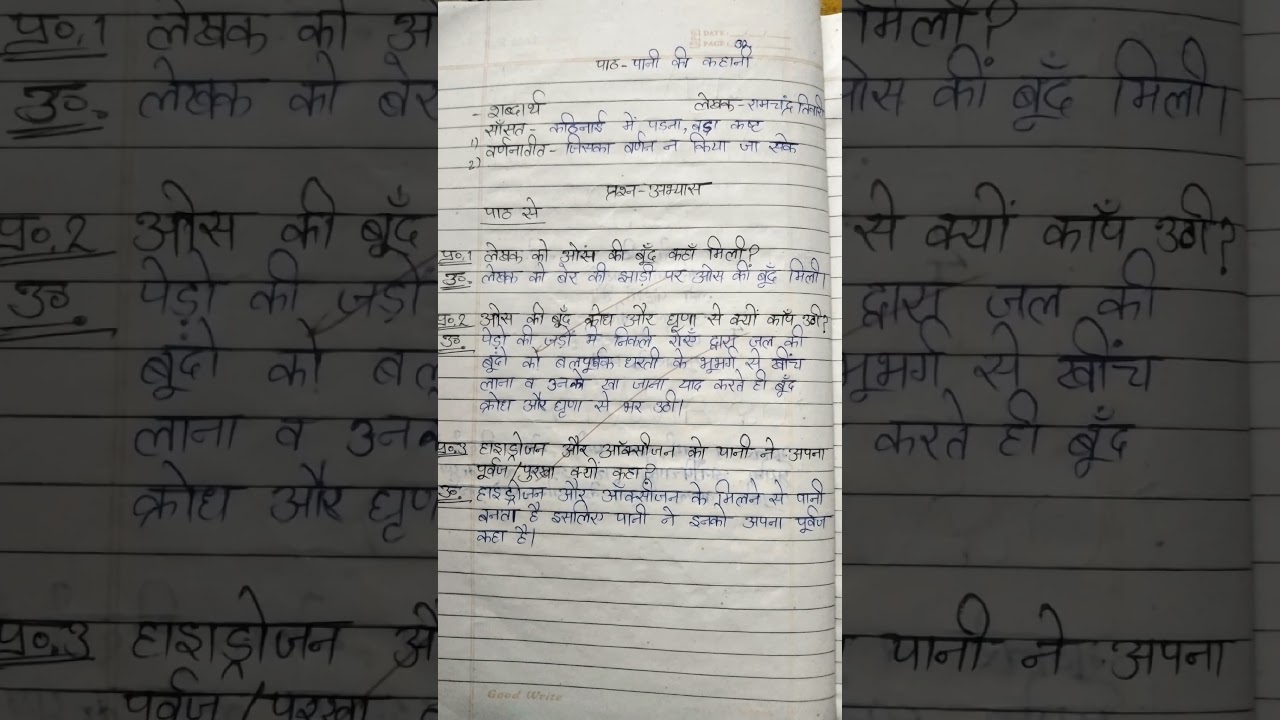 DATE
PAGE
पाठ-पानी की कहानी
- शब्दार्थ
लेखक-रामचंद्र तिवारी
1) साँसत- कठिनाई में पड़ना, बड़ा कष्ट
2) वर्णनातीत- जिसका वर्णन न किया जा सके
प्रश्न-अभ्यास
पाठ से
प्र०.1 लेखक को ओस की बूँद कहाँ मिली?
उ०. लेखक को बेर की झाड़ी पर ओस कीं बूँद मिली।
प्र०.2 ओस की बूँद क्रोध और घृणा से क्यों काँप उठी?
उ०. पेड़ो की जड़ों में निकले रोएँ द्वारा जल की
बूंदो को बलपूर्वक धरती के भूभर्ग से खींच
लाना व उनको खा जाना याद करते ही बूँद
क्रोध और घृणा से भर उठी।
प्र०.3 हाइड्रोजन और ऑक्सीजन को पानी ने अपना
पूर्वज/पुरखा क्यों कहा?
उ०. हाइड्रोजन और ऑक्सीजन के मिलने से पानी
बनता है इसलिए पानी ने इनको अपना पूर्वज
कहा है।
Good Write